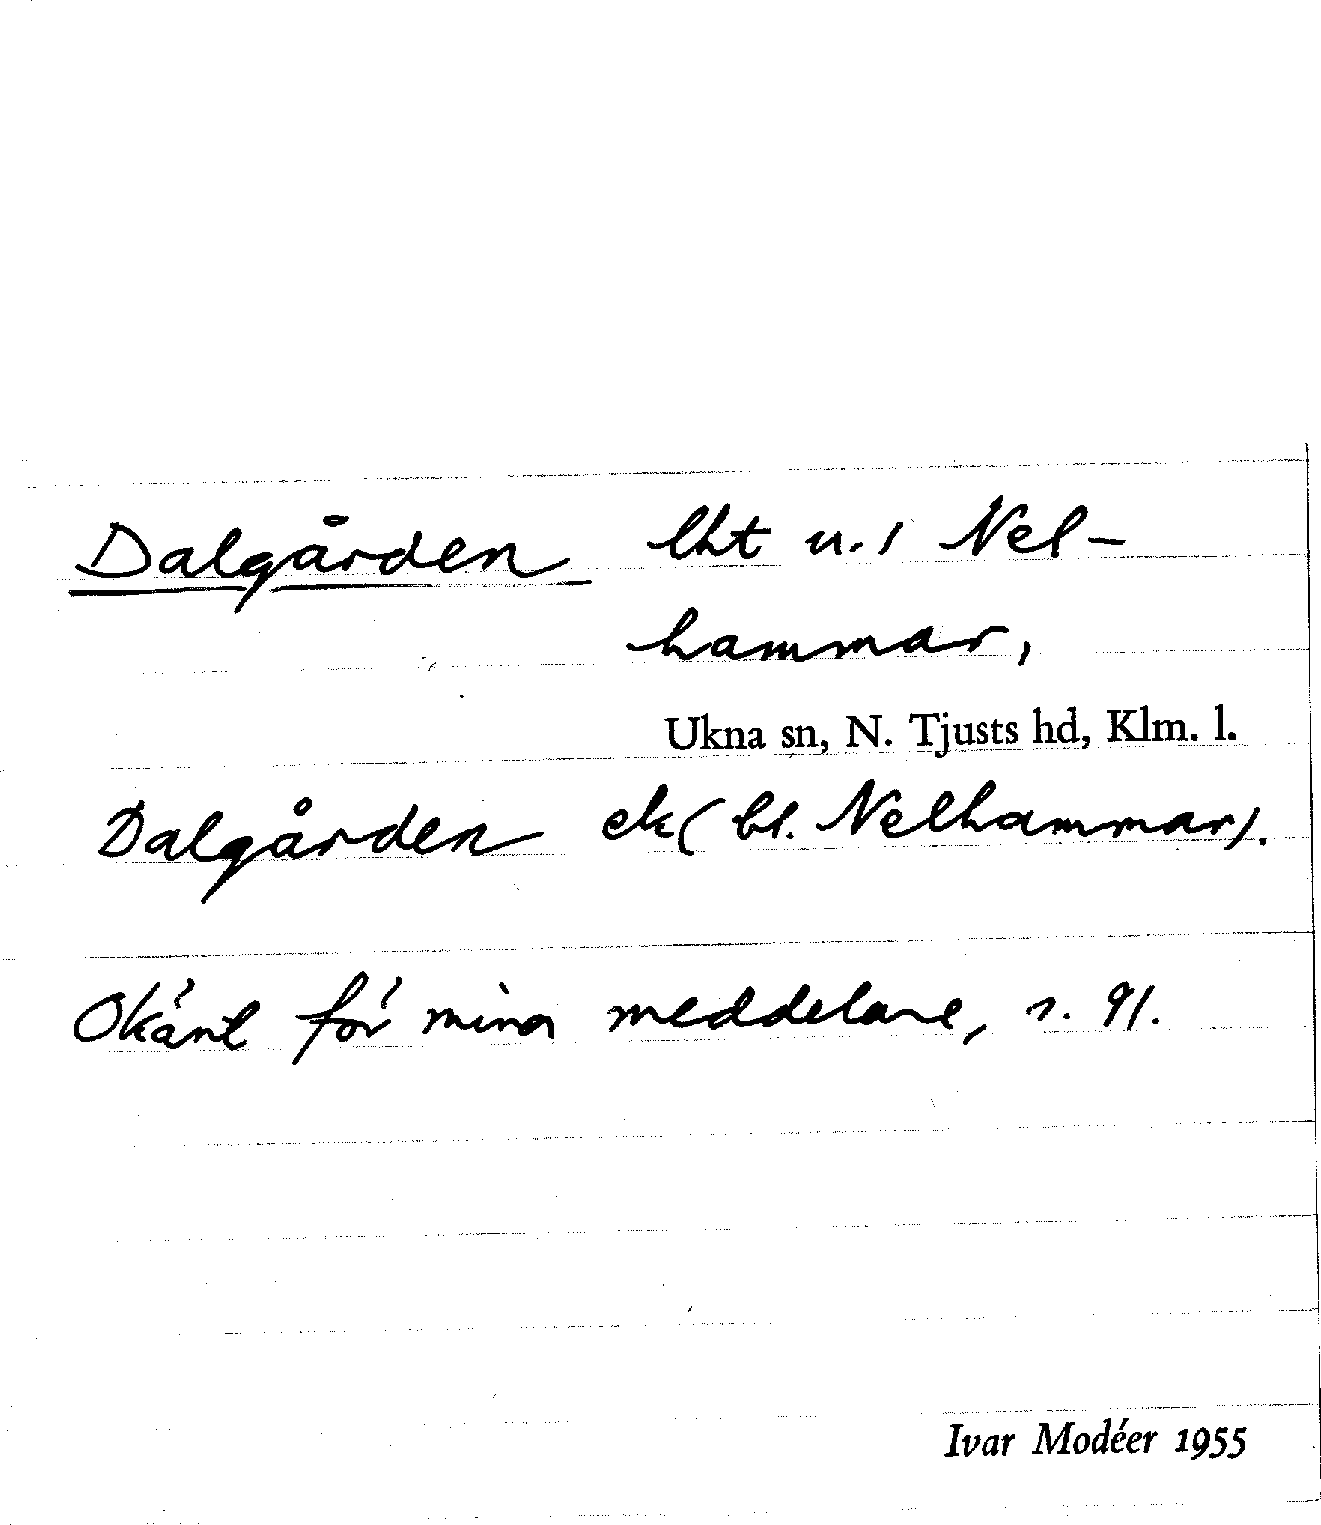 Dalgården lht u. 1 Nel-
hammar,
Ukna sn, N. Tjusts hd, Klm. l.
Dalgården ek (bl. Nelhammar).
Okänt för mina meddelare, s. 91.
Ivar Modéer 1955